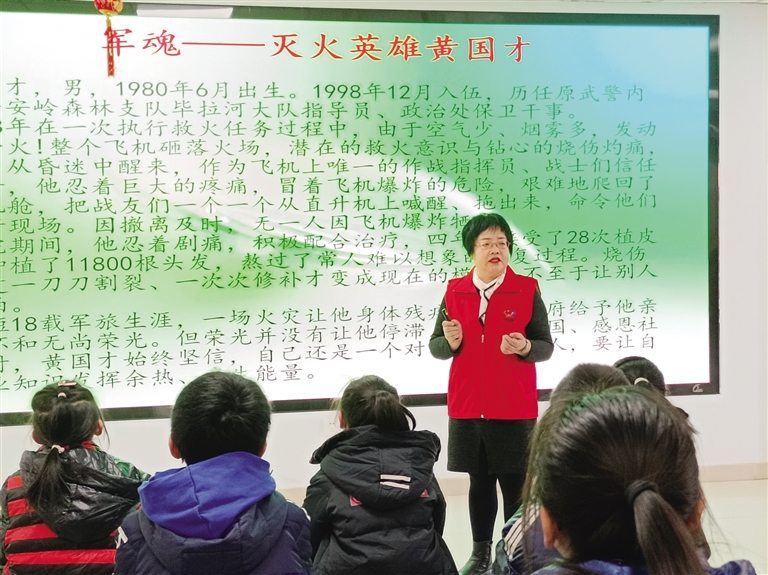 军魂——灭火英雄黄国才
才，男，1980年6月出生。1998年12月入伍，历任原武警内
安岭森林支队毕拉河大队指导员、政治处保卫干事。
年在一次执行救火任务过程中，由于空气少、烟雾多，发动
火！整个飞机砸落火场，潜在的救火意识与钻心的烧伤灼痛，
从昏迷中醒来，作为飞机上唯一的作战指挥员、战士们信任
，他忍着巨大的疼痛，冒着飞机爆炸的危险，艰难地爬回了
机舱，把战友们一个一个从直升机上喊醒、拖出来，命令他们
现场。因撤离及时，无一人因飞机爆炸牺
期间，他忍着剧痛，积极配合治疗，四年 受了28次植皮
种植了11800根头发，熬过了常人难以想象 复过程。烧伤
一刀刀割裂、一次次修补才变成现在的模 不至于让别人
18载军旅生涯，一场火灾让他身体残 府给予他亲
和无尚荣光。但荣光并没有让他停滞 国、感恩社
，黄国才始终坚信，自己还是一个对 人，要让自
业知识发挥余热、 能量。